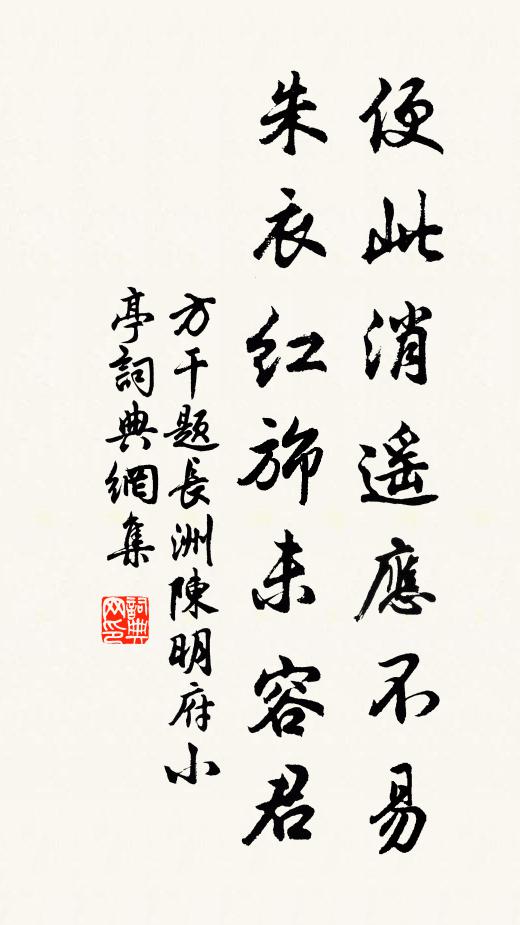 便此消遙應不易
朱衣紅旆未容君
方干題長洲陳明府小
亭詞典網集
詞典
网印